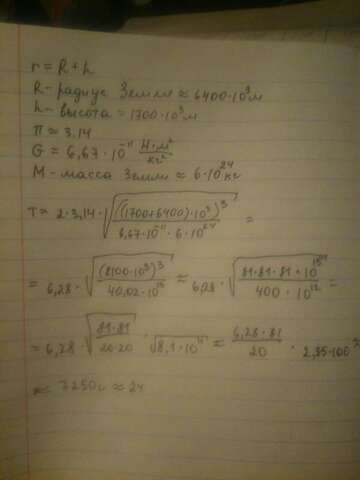 r = R + h
R - радиус Земли ≈ 6400·10³м
h - высота = 1700·10³м
π ≈ 3.14
G = 6,67·10⁻¹¹ Н·м²/кг²
M - масса Земли ≈ 6·10²⁴кг
T ≈ 2·3,14·√(((1700+6400)·10³)³/(6,67·10⁻¹¹·6·10²⁴)) =
= 6,28·√((8100·10³)³/(40,02·10¹³)) ≈ 6,28·√(81·81·81·10¹⁵/(400·10¹²)) =
= 6,28·√(81·81/(20·20))·√(8,1·10⁴) ≈ 6,28·81/20·2,85·100 ≈
≈ 7250с ≈ 2ч